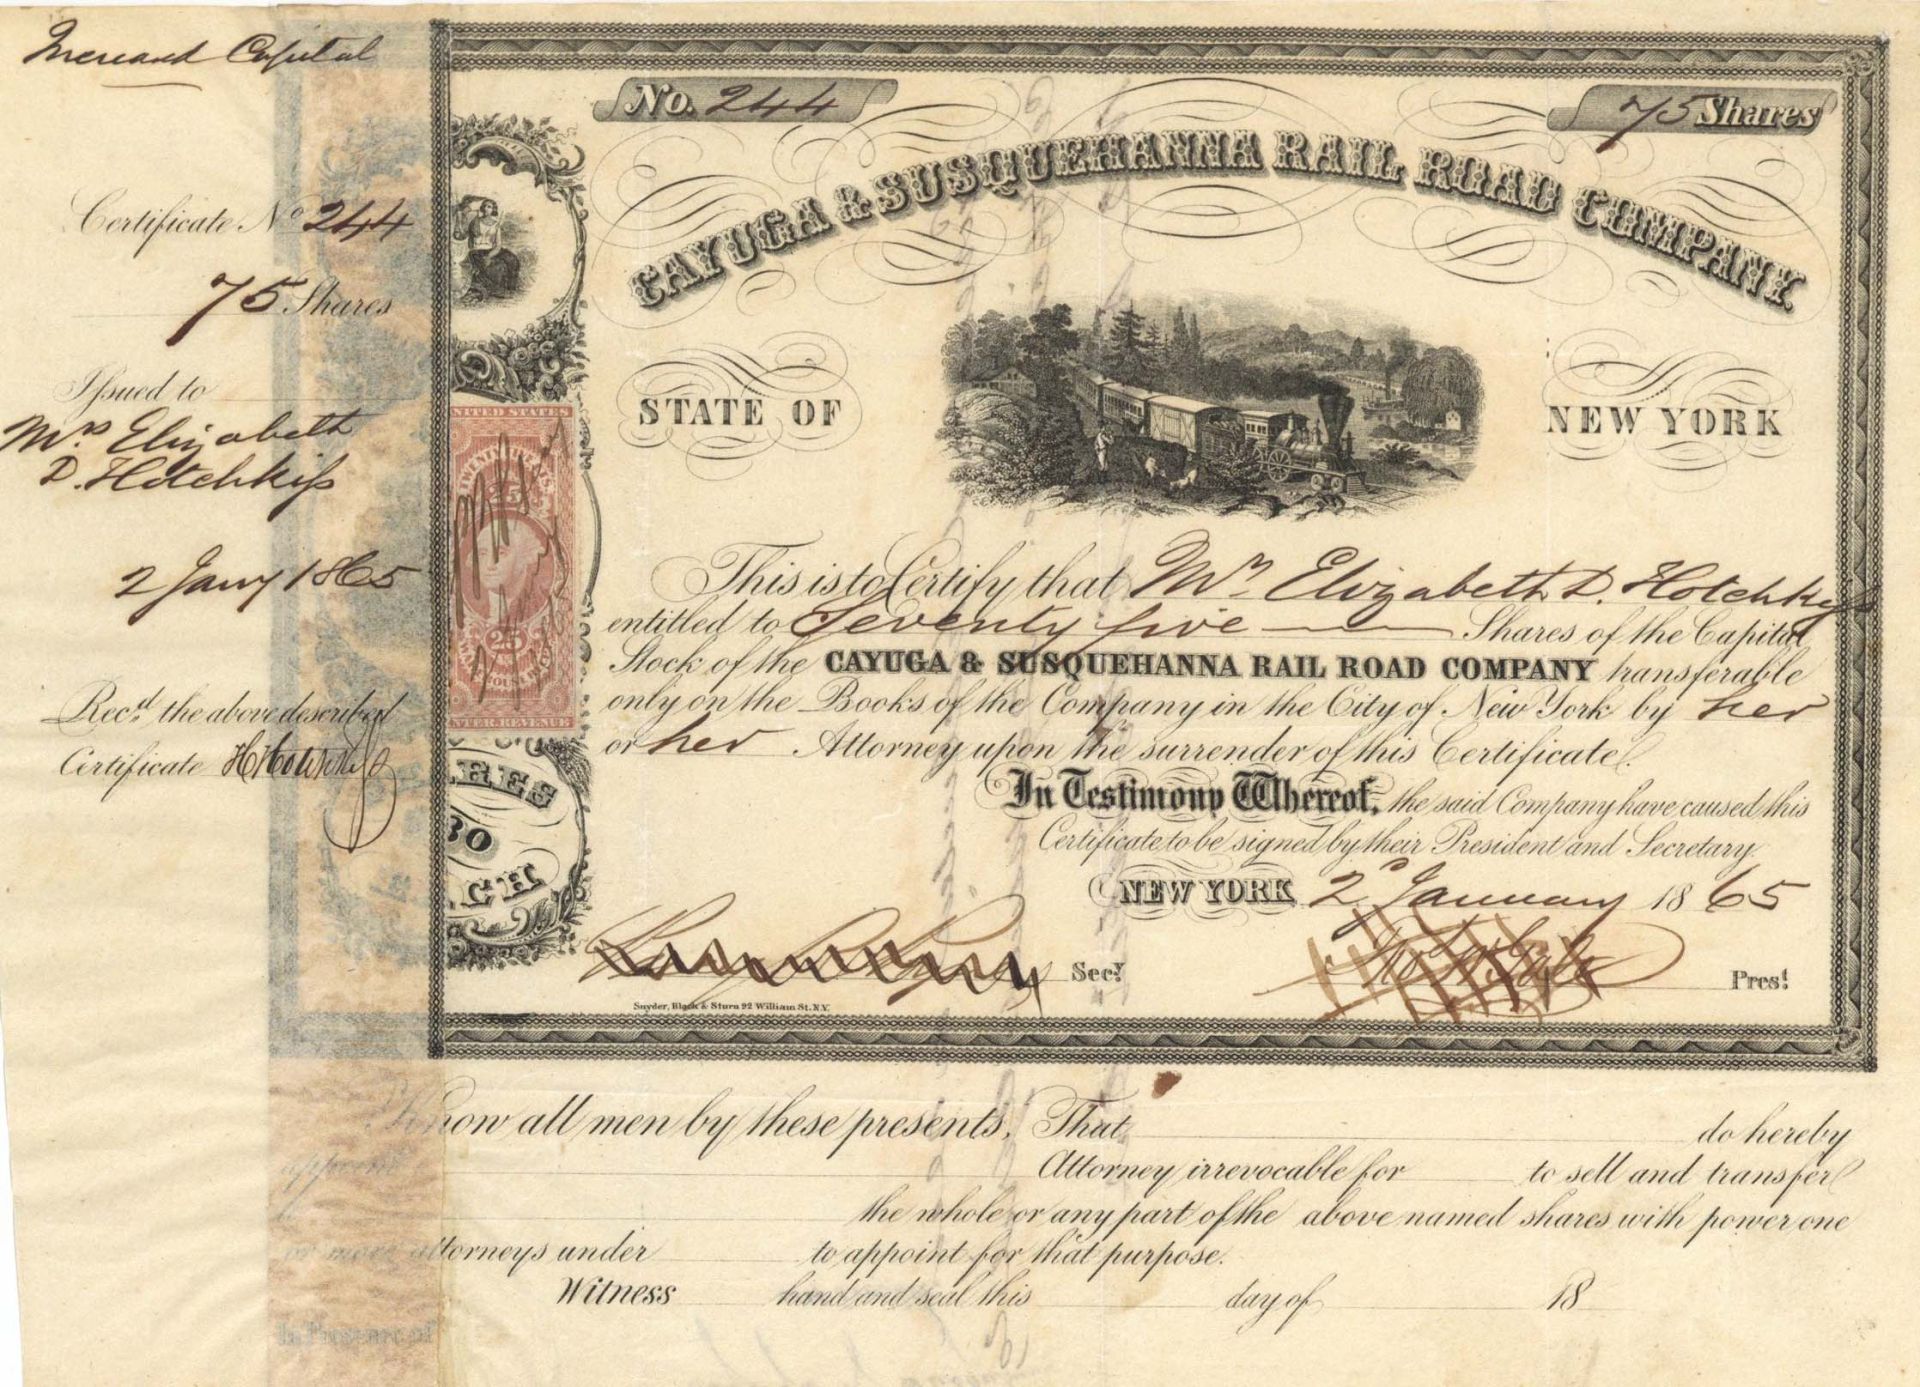 Increased Capital
Certificate No 244
75 Shares
Issued to
Mrs Elizabeth
D. Hotchkiss
2 Jany 1865
Recd. the above described
Certificate
UNITED STATES
25
25
INTER. REVENUE
ARES
No. 244
75 Shares
CAYUGA & SUSQUEHANNA RAIL ROAD COMPANY
STATE OF
NEW YORK
This is to Certify that Mrs Elizabeth D. Hotchkiss
entitled to Seventy five Shares of the Capital
Stock of the CAYUGA & SUSQUEHANNA RAIL ROAD COMPANY transferable
only on the Books of the Company in the City of New York by her
or her Attorney upon the surrender of this Certificate.
In Testimony Whereof, the said Company have caused this
Certificate to be signed by their President and Secretary.
NEW YORK 2d January 1865
Secy.
Prest.
Snyder, Black & Sturn 92 William St. N.Y.
Know all men by these presents, That do hereby
appoint Attorney irrevocable for to sell and transfer
the whole or any part of the above named shares with power one
or more attorneys under to appoint for that purpose.
Witness hand and seal this day of 18
In Presence of